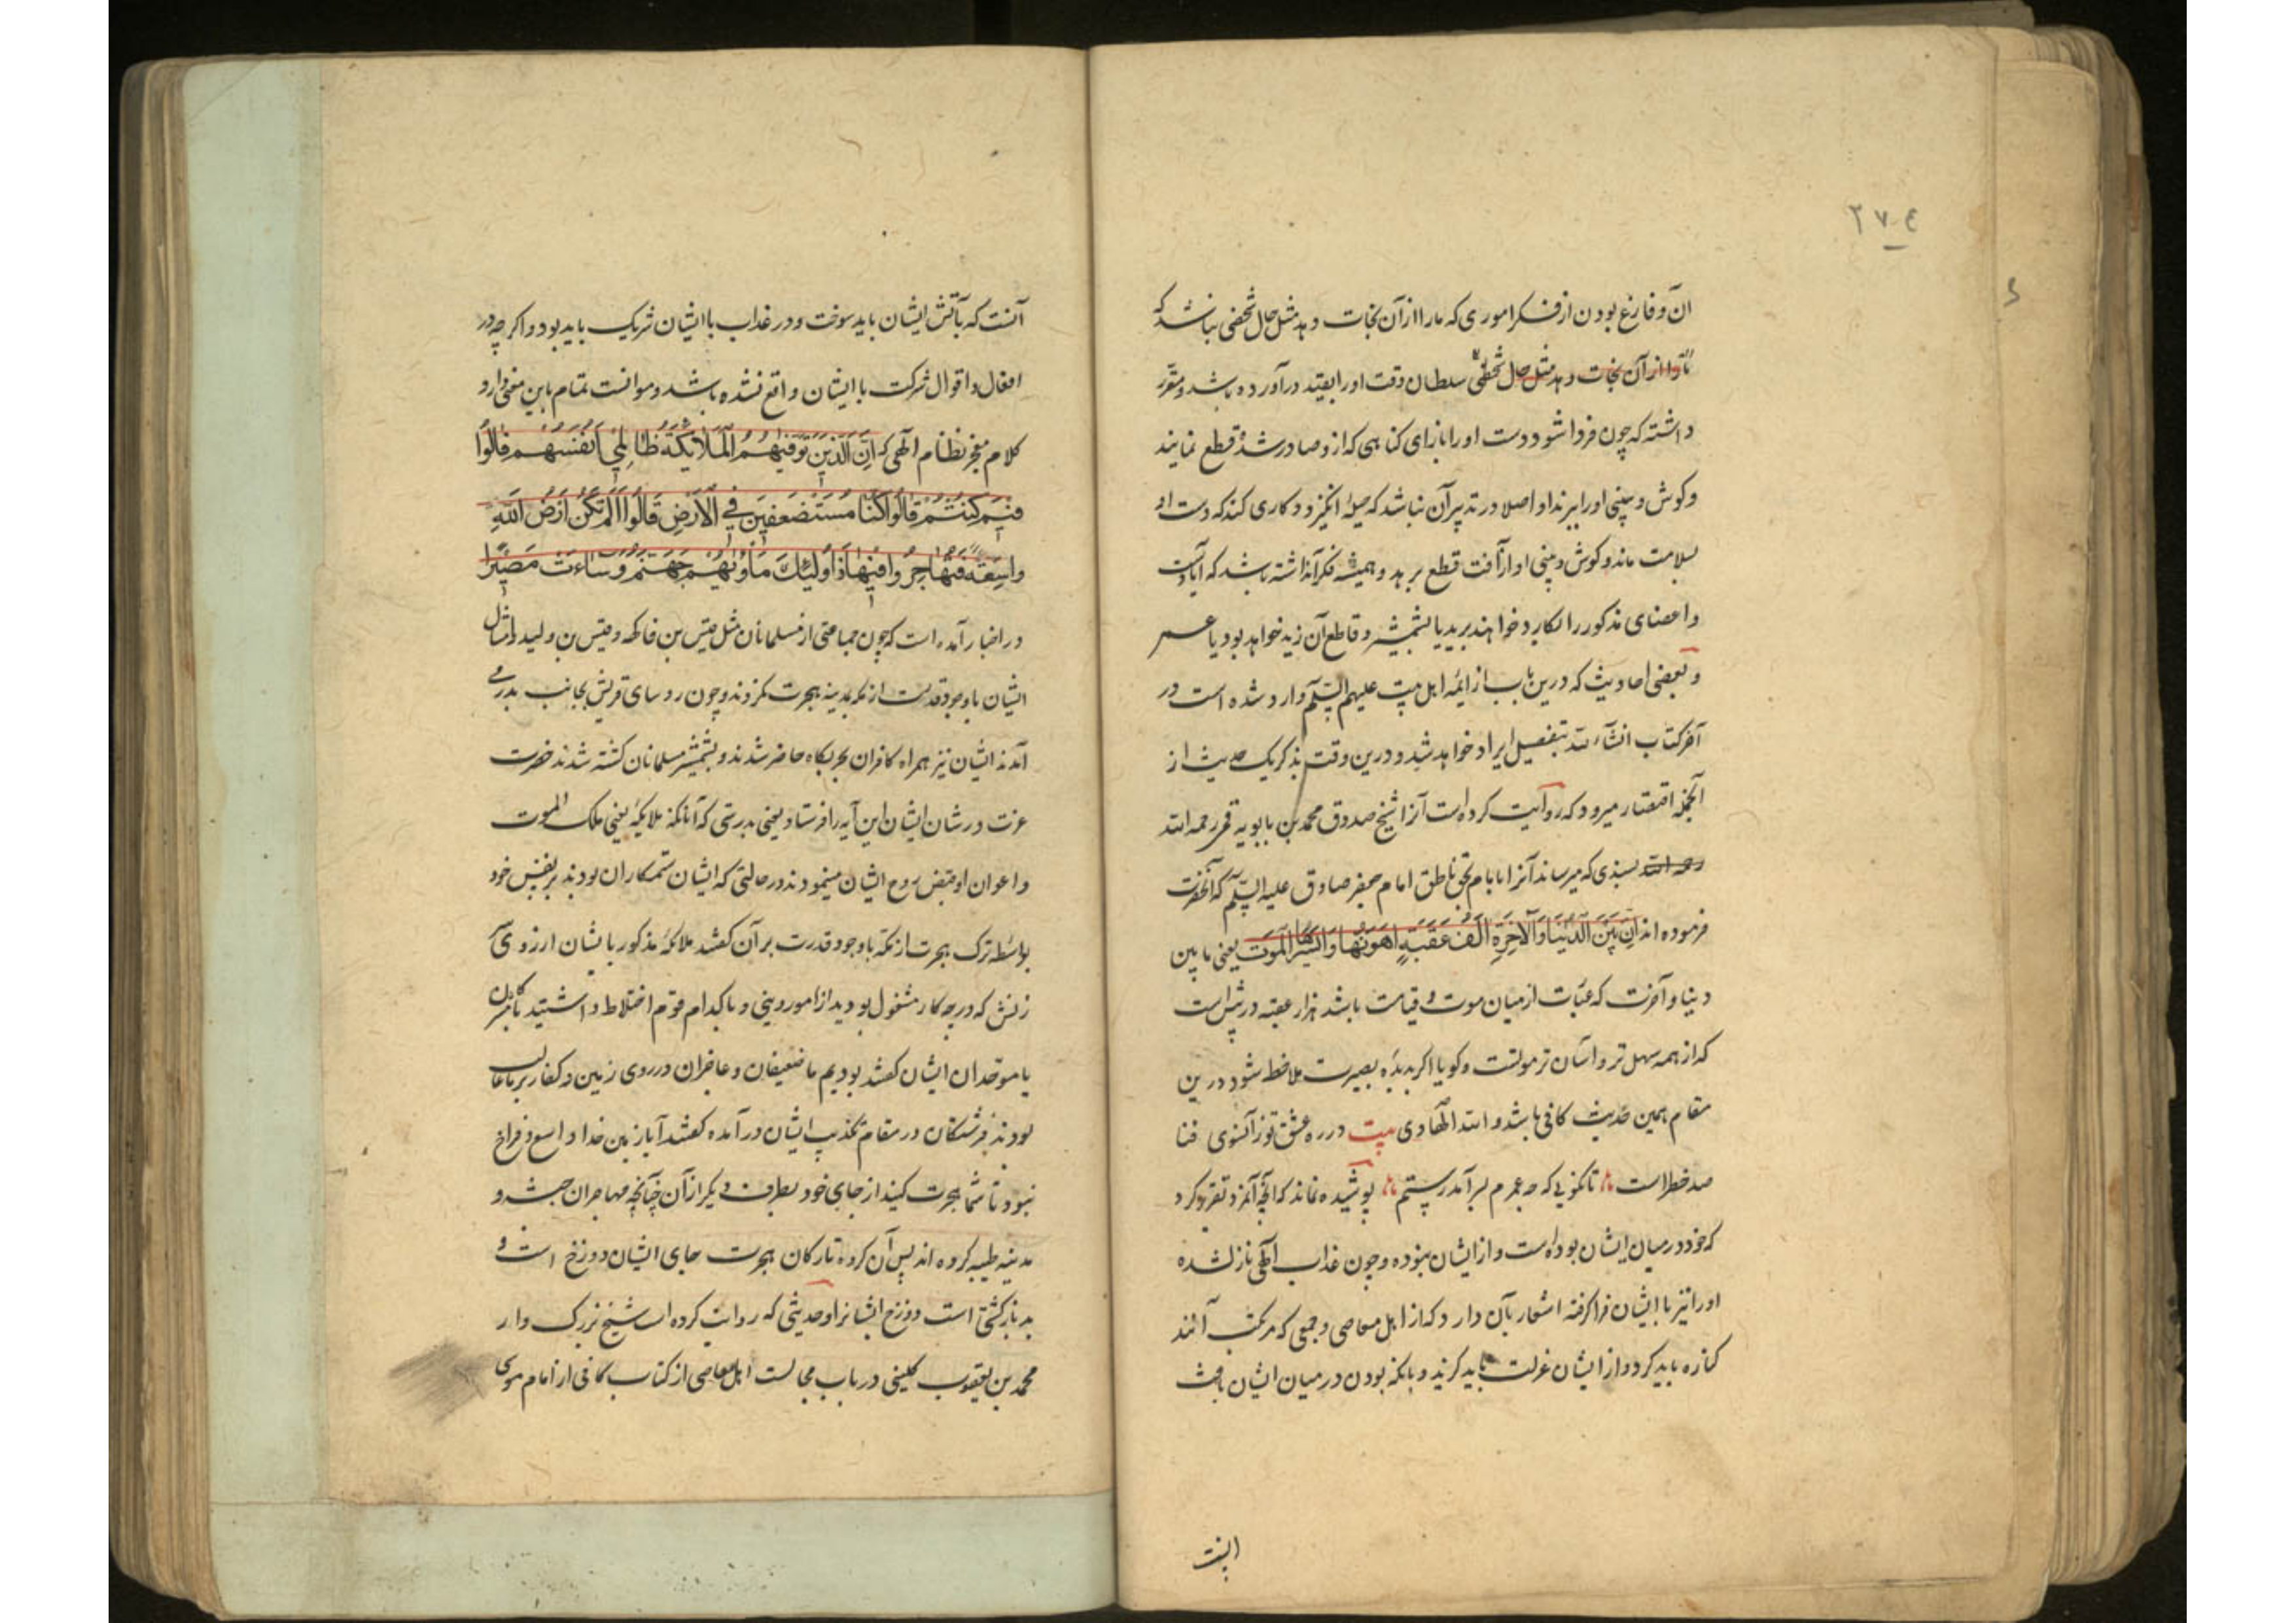 ۲۷۴
ان و فارغ بودن از فکر اموری که ما را از آن نجات دهد مثل حال شخصی نباشد که
تا او را از آن نجات دهد مثل حال شخصی سلطان وقت او را بقید درآورده باشد و مقرر
داشته که چون فردا شود دست او را بازای کناهی که از و صادر شده قطع نمایند
و کوش و بینی او را ببرند او اصلا در تدبیر آن نباشد که حیلهٔ انکیزد و کاری کند که دست او
بسلامت ماند و کوش و بینی او از آفت قطع برهد و همیشه فکر آنداشته باشد که آیا دست
و اعضای مذکور را بکارد خواهند برید یا بشمشیر و قاطع آن زید خواهد بود یا عمر
و بعضی احادیث که درین باب از ائمه اهل بیت علیهم السلم وارد شده است در
آخر کتاب انشاء الله بتفصیل ایراد خواهد شد و درین وقت بذکر یک حدیث از
آنجمله اقتصار میرود که روایت کرده است آنرا شیخ صدوق محمد بن بابویه قمی رحمه الله
رحمه الله بسندی که میرساند آنرا بامام بحق ناطق امام جعفر صادق علیه السلم که آنحضرت
فرموده اند ان بین الدنیا والآخرة الف عقبة اهونها وایسرها الموت یعنی مابین
دنیا و آخرت که عبارت از میان موت و قیامت باشد هزار عقبه در پیش است
که از همه سهل تر و آسان تر موتست و کویا اکر بدیده بصیرت ملاحظه شود درین
مقام همین حدیث کافی باشد و الله الهادی بیت در ره عشق تو ز آنسوی فنا
صد خطر است تا نکویی که چه عمرم بسر آمد رستم پوشیده نماند که آنچه آنمرد تقریر کرد
که خود در میان ایشان بوده است و از ایشان نبوده و چون عذاب الهی نازلشده
او را نیز با ایشان فرا کرفته اشعار بآن دارد که از اهل معاصی و جمعی که مرتکب آنند
کناره باید کرد و از ایشان عزلت باید کزید و بآنکه بودن در میان ایشان باعث
اینست
آنست که بآتش ایشان باید سوخت و در عذاب با ایشان شریک باید بود و اکر چه در
افعال و اقوال شرکت با ایشان واقع نشده باشد و موانست تمام باین معنی دارد
کلام معجز نظام الهی که ان الذین توفیهم الملائکة ظالمی انفسهم قالوا
فیم کنتم قالوا کنا مستضعفین فی الارض قالوا الم تکن ارض الله
واسعة فتهاجروا فیها فاولئک ماویهم جهنم وساءت مصیرا
در اخبار آمده است که چون جماعتی از مسلمانان مثل قیس بن فاکهه و قیس بن ولید و امثال
ایشان با وجود قدرت از مکه بمدینه هجرت نکردند و چون روسای قریش بجانب بدر می
آمدند ایشان نیز همراه کافران بحربکاه حاضر شدند و بشمشیر مسلمانان کشته شدند حضرت
عزت در شان ایشان این آیه را فرستاد یعنی بدرستی که آنانکه ملایکه یعنی ملک الموت
و اعوان او قبض روح ایشان مینمودند در حالتی که ایشان ستمکاران بودند بر نفس خود
بواسطه ترک هجرت از مکه با وجود قدرت بر آن کفتند ملائکه مذکور بایشان از روی
زنش که در چه کار مشغول بودید از امور دینی و با کدام قوم اختلاط داشتید با کافران
یا موحدان ایشان کفتند بودیم ما ضعیفان و عاجزان در روی زمین و کفار بر ما غالب
بودند فرشتکان در مقام تکذیب ایشان درآمده کفتند آیا زمین خدا واسع و فراخ
نبود تا شما هجرت کنید از جای خود بطرف دیکر از آن چنانچه مهاجران حبشه و
مدینه طیبه کرده اند پس آن کروه تارکان هجرت جای ایشان دوزخ است و
بد بازکشتی است دوزخ ایشانرا و حدیثی که روایت کرده است شیخ بزرک وار
محمد بن یعقوب کلینی در باب مجالست اهل معاصی از کتاب کافی از امام موسی